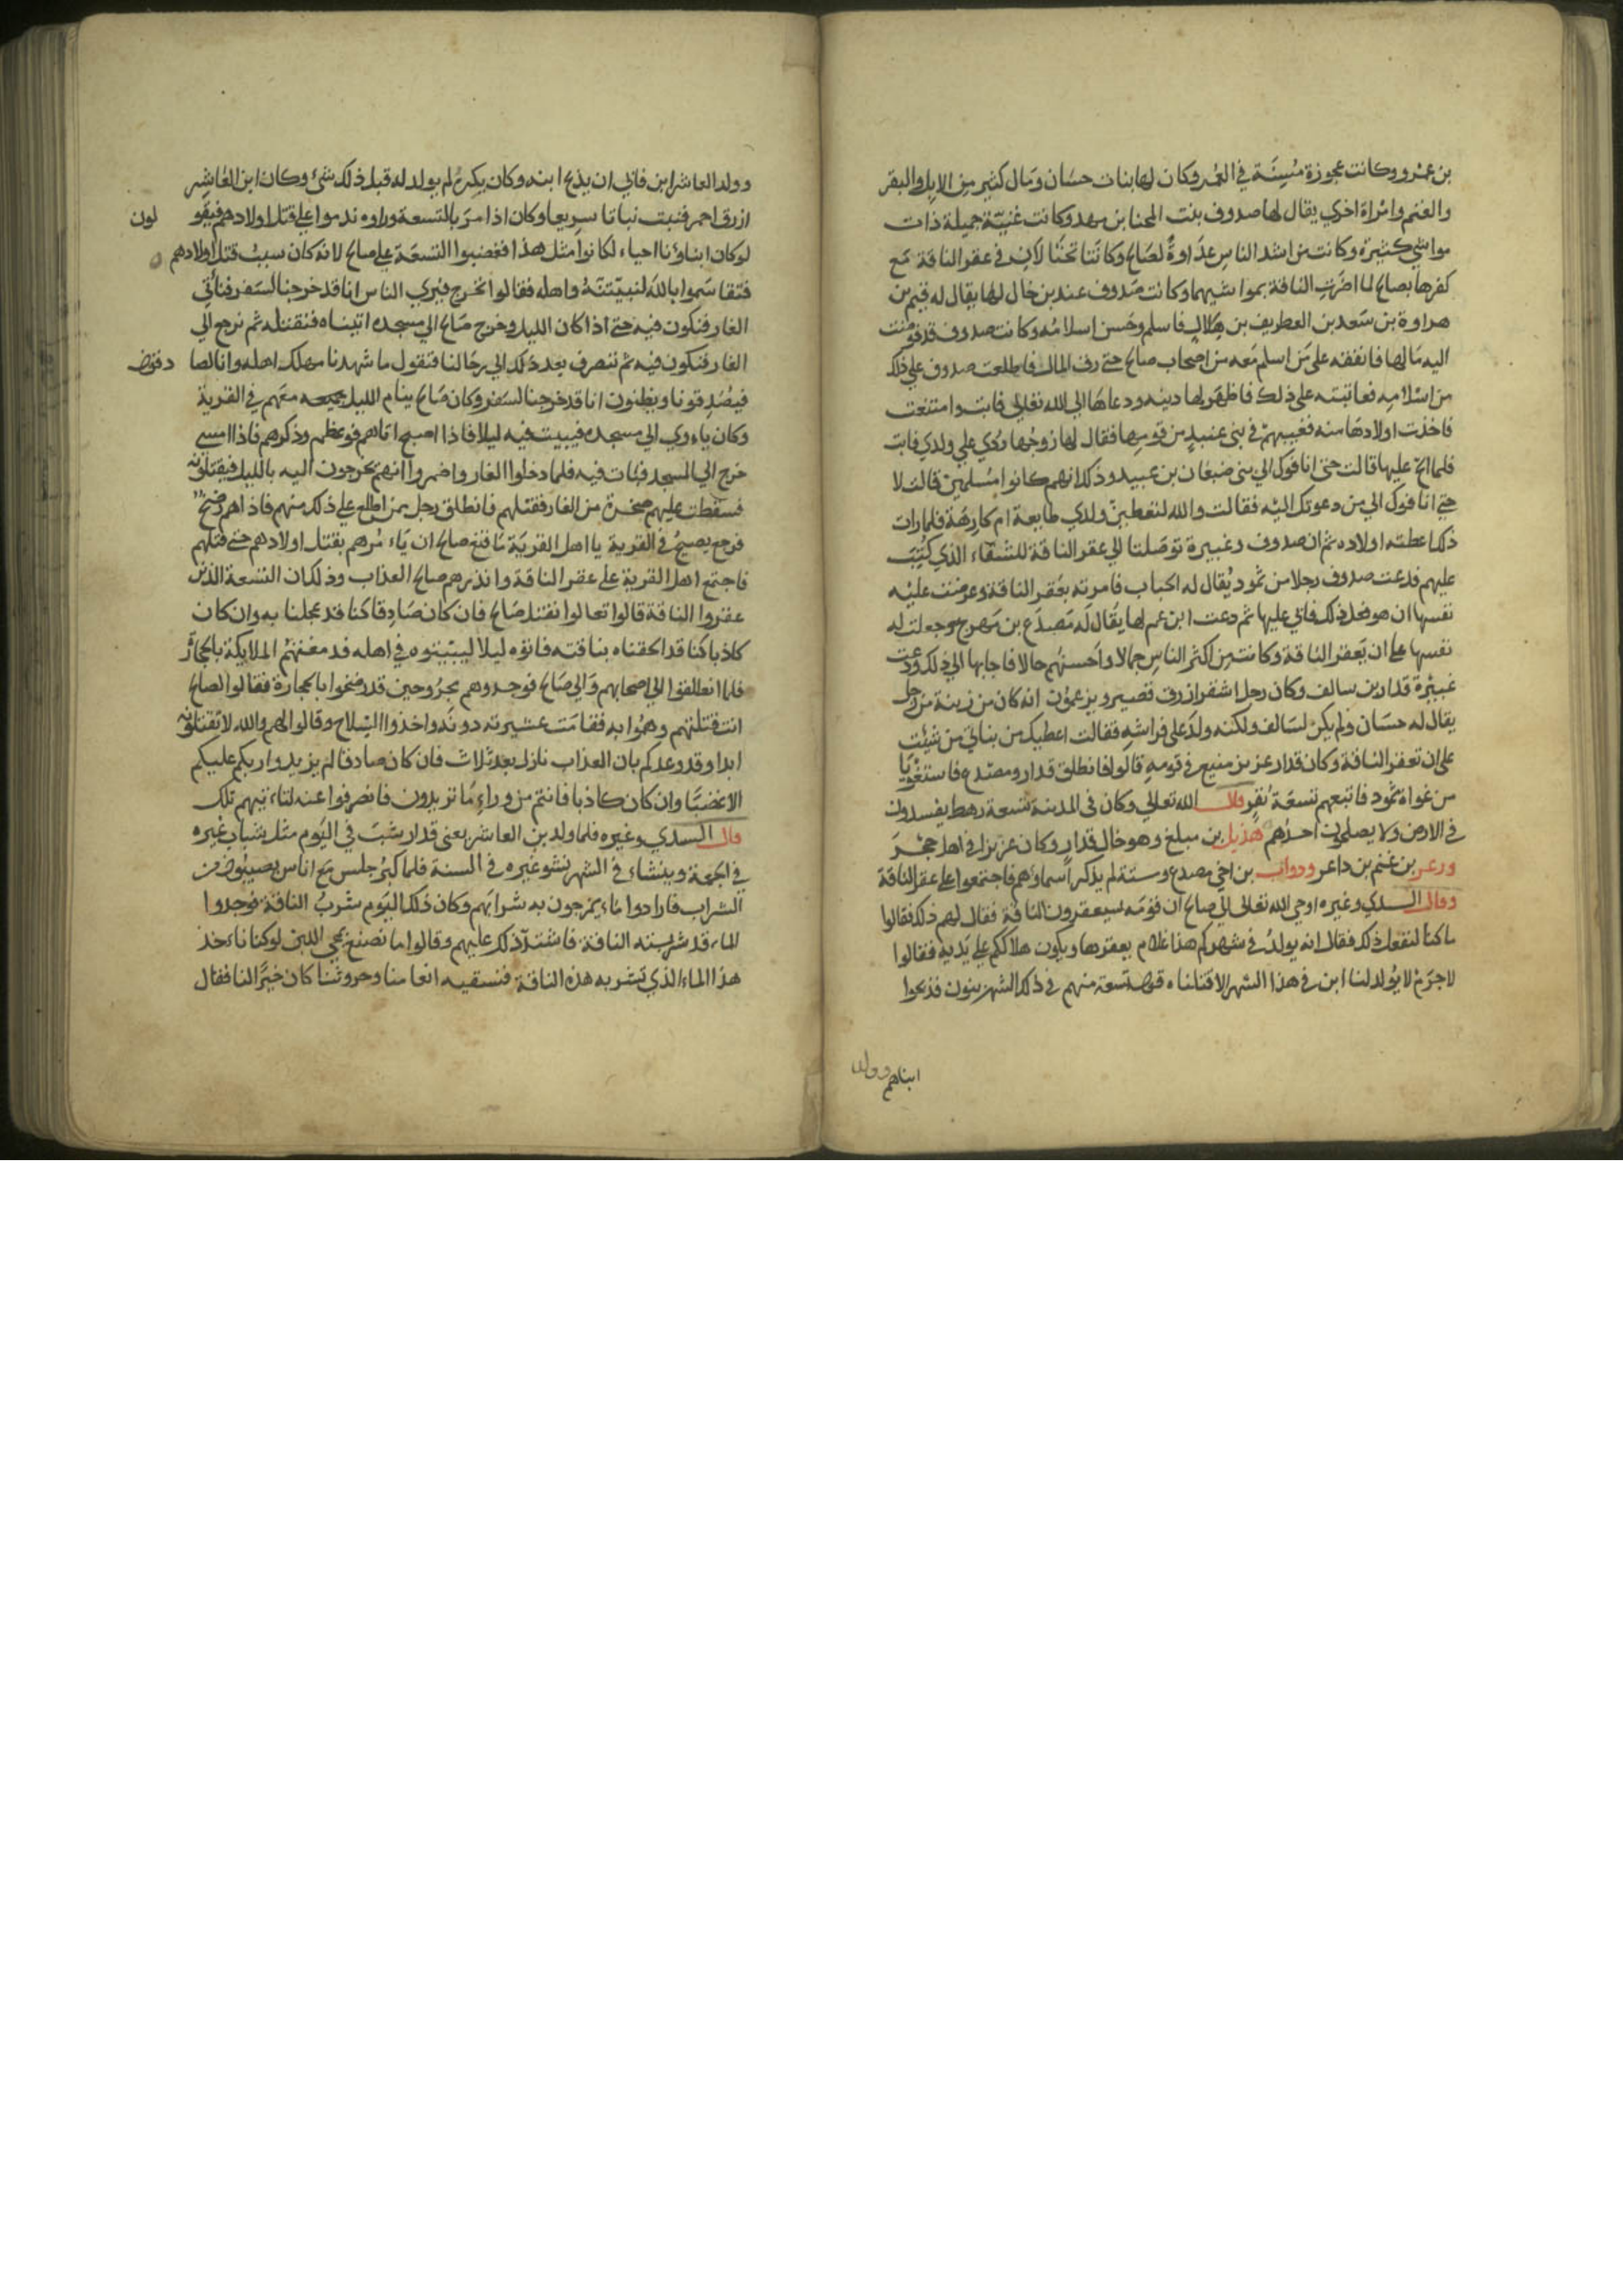 بن عمرو وكانت عجوزة مسنة في العمر وكان لها بنات حسان ومال كثير من الابل والبقر
والغنم وامراة اخري يقال لها صدوف بنت المحنا بن مهد وكانت غنية جميلة ذات
مواشي كثيرة وكانت من اشد الناس عداوة لصالح وكانتا في عقر الناقة مع
كفرها بصالح لما اضرت الناقة بمواشيهما وكانت صدوف عند بن خال لها يقال له
هراوة بن سعد بن الغطريف بن هلال فاسلم وحسن اسلامه وكانت صدوف قد فوضت
اليه مالها فانفقه على من اسلم معه من اصحاب صالح حتى رق المال فاطلعت صدوف على ذلك
من اسلامه فعاتبته على ذلك فاظهر لها دينه ودعاها الي الله تعالى فابت وامتنعت
فاخذت اولادها منه فغيبهم في بني عبيد من قومها فقال لها زوجها ردي علي ولدي فابت
فلما الح عليها قالت حتى انا فرك الي بني ضبعان بن عبيد وذلك انهم كانوا مسلمين قالت لا
حتى انا فرك الي من دعوتك اليه فقالت والله لتعطين ولدي طايعة ام كارهة فلما رات
ذلك اعطته اولاده ثم ان صدوف وعنيزة توصلتا الي عقر الناقة للشقاء الذي كتب
عليهم فدعت صدوف رجلا من ثمود يقال له الحباب فامرته بعقر الناقة وعرضت عليه
نفسها ان هو فعل ذلك فابي عليها ثم دعت ابن عم لها يقال له مصدع بن مهرج وجعلت له
نفسها على ان يعقر الناقة وكانت من اكثر الناس جمالا واحسنهم حالا فاجابها الي ذلك ودعت
عنيزة قدار بن سالف وكان رجل اشقر ازرق قصير ويزعمون انه كان من زينة من رجل
يقال له حسان ولم يكن لسالف ولكنه ولد على فراشه فقالت اعطيك من بناتي من شيت
على ان تعقر الناقة وكان قدار عزيز منيع في قومه قالوا فانطلق قدار ومصدع فاستغويا
من غواة ثمود فاتبعهم تسعة نفر قال الله تعالى وكان في المدينة تسعة رهط يفسدون
في الارض ولا يصلحون احدهم هذيل بن مبلغ وهو خال قدار وكان عزيزا في اهل حجر
ورعر بن غنم بن داعر ودواب بن اخي مصدع وستة لم يذكر اسماوهم فاجتمعوا على عقر الناقة
وقال السدي وغيره اوحي الله تعالى الي صالح ان قومه سيعقرون الناقة فقال لهم ذلك فقالوا
ما كنا لنفعل ذلك فقال انه يولد في شهركم هذا غلام يعقرها ويكون هلاككم على يديه فقالوا
لا جرم لا يولد لنا ابن في هذا الشهر الا قتلناه تسعة منهم في ذلك الشهر بنون فذبحوا
ابناهم وولد
وولد العاشر ابن فابي ان يذبح ابنه وكان بكره لم يولد له قبل ذلك شيء وكان ابن العاشر
ازرق احمر فنبت نباتا سريعا وكان اذا مر بالتسعة وراوه ندموا على قتل اولادهم فيقو لون
لو كان ابناؤنا احياء لكانوا مثل هذا فغضبوا التسعة على صالح لانه كان سبب قتل اولادهم
فتقاسموا بالله لنبيتنه واهله فقالوا نخرج فيري الناس انا قد خرجنا لسفر فناتي
الغار فنكون فيه حتى اذا كان الليل وخرج صالح الي مسجده اتيناه فنقتله ثم نرجع الي
الغار فنكون فيه ثم ننصرف بعد ذلك الي رحالنا فنقول ما شهدنا مهلك اهله وانا لصا دقون
فيصدقونا ويظنون انا قد خرجنا لسفر وكان صالح ينام الليل معهم في القرية
وكان ياوي الي مسجده فيبيت فيه ليلا فاذا اصبح اتاهم فوعظهم وذكرهم فاذا امسي
خرج الي المسجد فبات فيه فلما دخلوا الغار واضمروا انهم يخرجون اليه بالليل فيقتلونه
فسقطت عليهم صخرة من الغار فقتلهم فانطلق رجل ممن اطلع على ذلك منهم فاذا هم رضخ
فرجع يصيح في القرية يا اهل القرية ما قنع صالح ان ياء مرهم بقتل اولادهم حتى قتلهم
فاجتمع اهل القرية على عقر الناقة وانذرهم صالح العذاب وذلك ان التسعة الذين
عقروا الناقة قالوا تعالوا نقتل صالح فان كان صادقا كنا قد عجلنا به وان كان
كاذبا كنا قد الحقناه بناقته فاتوه ليلا ليبيتوه في اهله فدمغتهم الملايكة بالحجارة
فلما انطلقوا الي اصحابهم والي صالح فوجدوهم مجروحين قد رضخوا بالحجارة فقالوا لصالح
انت قتلتهم وهموا به فقامت عشيرته دونه واخذوا السلاح وقالوا لهم والله لا تقتلونه
ابدا وقد وعدكم بان العذاب نازل بعد ثلاث فان كان صادقا لم يزيدوا ربكم عليكم
الا غضبا وان كان كاذبا فانتم من وراء ما تريدون فانصرفوا عنه ليلتهم تلك
قال السدي وغيره فلما ولد بن العاشر يعني قدار يشب في اليوم مثل شباب غيره
في الجمعة وينشاء في الشهر نشو غيره في السنة فلما كبر جلس مع اناس يصيبون من
الشراب فارادوا ماء يمزجون به شرابهم وكان ذلك اليوم شرب الناقة فوجدوا
الماء قد شربته الناقة فاشتد ذلك عليهم وقالوا ما نصنع نحن باللبن لو كنا ناءخذ
هذا الماء الذي تشربه هذه الناقة فنسقيه انعامنا وحروثنا كان خيرا لنا فقال